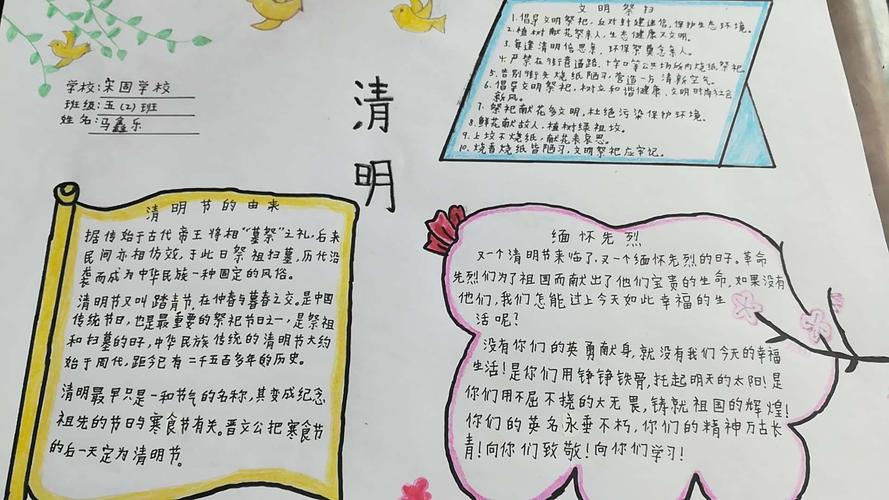 学校:宋固学校
班级:五(2)班
姓名:马鑫乐
清明
文明祭扫
1.倡导文明祭祀,反对封建迷信,保护生态环境。
2.植树献花祭亲人,生态健康又文明。
3.每逢清明倍思亲,环保祭奠念亲人。
4.严禁在街巷道路、十字口等公共场所内烧纸祭祀。
5.告别街头烧纸陋习,营造一方清新空气。
6.倡导文明祭祀,树立和谐健康、文明时尚社会
新风。
7.祭祀献花多文明,杜绝污染保护环境。
8.鲜花献故人,植树绿祖坟。
9.上坟不烧纸,献花表哀思。
10.烧香烧纸皆陋习,文明祭祀应牢记。
清明节的由来
据传始于古代帝王将相“墓祭”之礼,后来
民间亦相仿效,于此日祭祖扫墓,历代沿
袭而成为中华民族一种固定的风俗。
清明节又叫踏青节,在仲春与暮春之交,是中国
传统节日,也是最重要的祭祀节日之一,是祭祖
和扫墓的日子,中华民族传统的清明节大约
始于周代,距今已有二千五百多年的历史。
清明最早只是一种节气的名称,其变成纪念
祖先的节日与寒食节有关。晋文公把寒食节
的后一天定为清明节。
缅怀先烈
又一个清明节来临了,又一个缅怀先烈的日子。革命
先烈们为了祖国而献出了他们宝贵的生命,如果没有
他们,我们怎能过上今天如此幸福的生
活呢?
没有你们的英勇献身,就没有我们今天的幸福
生活!是你们用铮铮铁骨,托起明天的太阳!是
你们用不屈不挠的大无畏,铸就祖国的辉煌!
你们的英名永垂不朽,你们的精神万古长
青!向你们致敬!向你们学习!